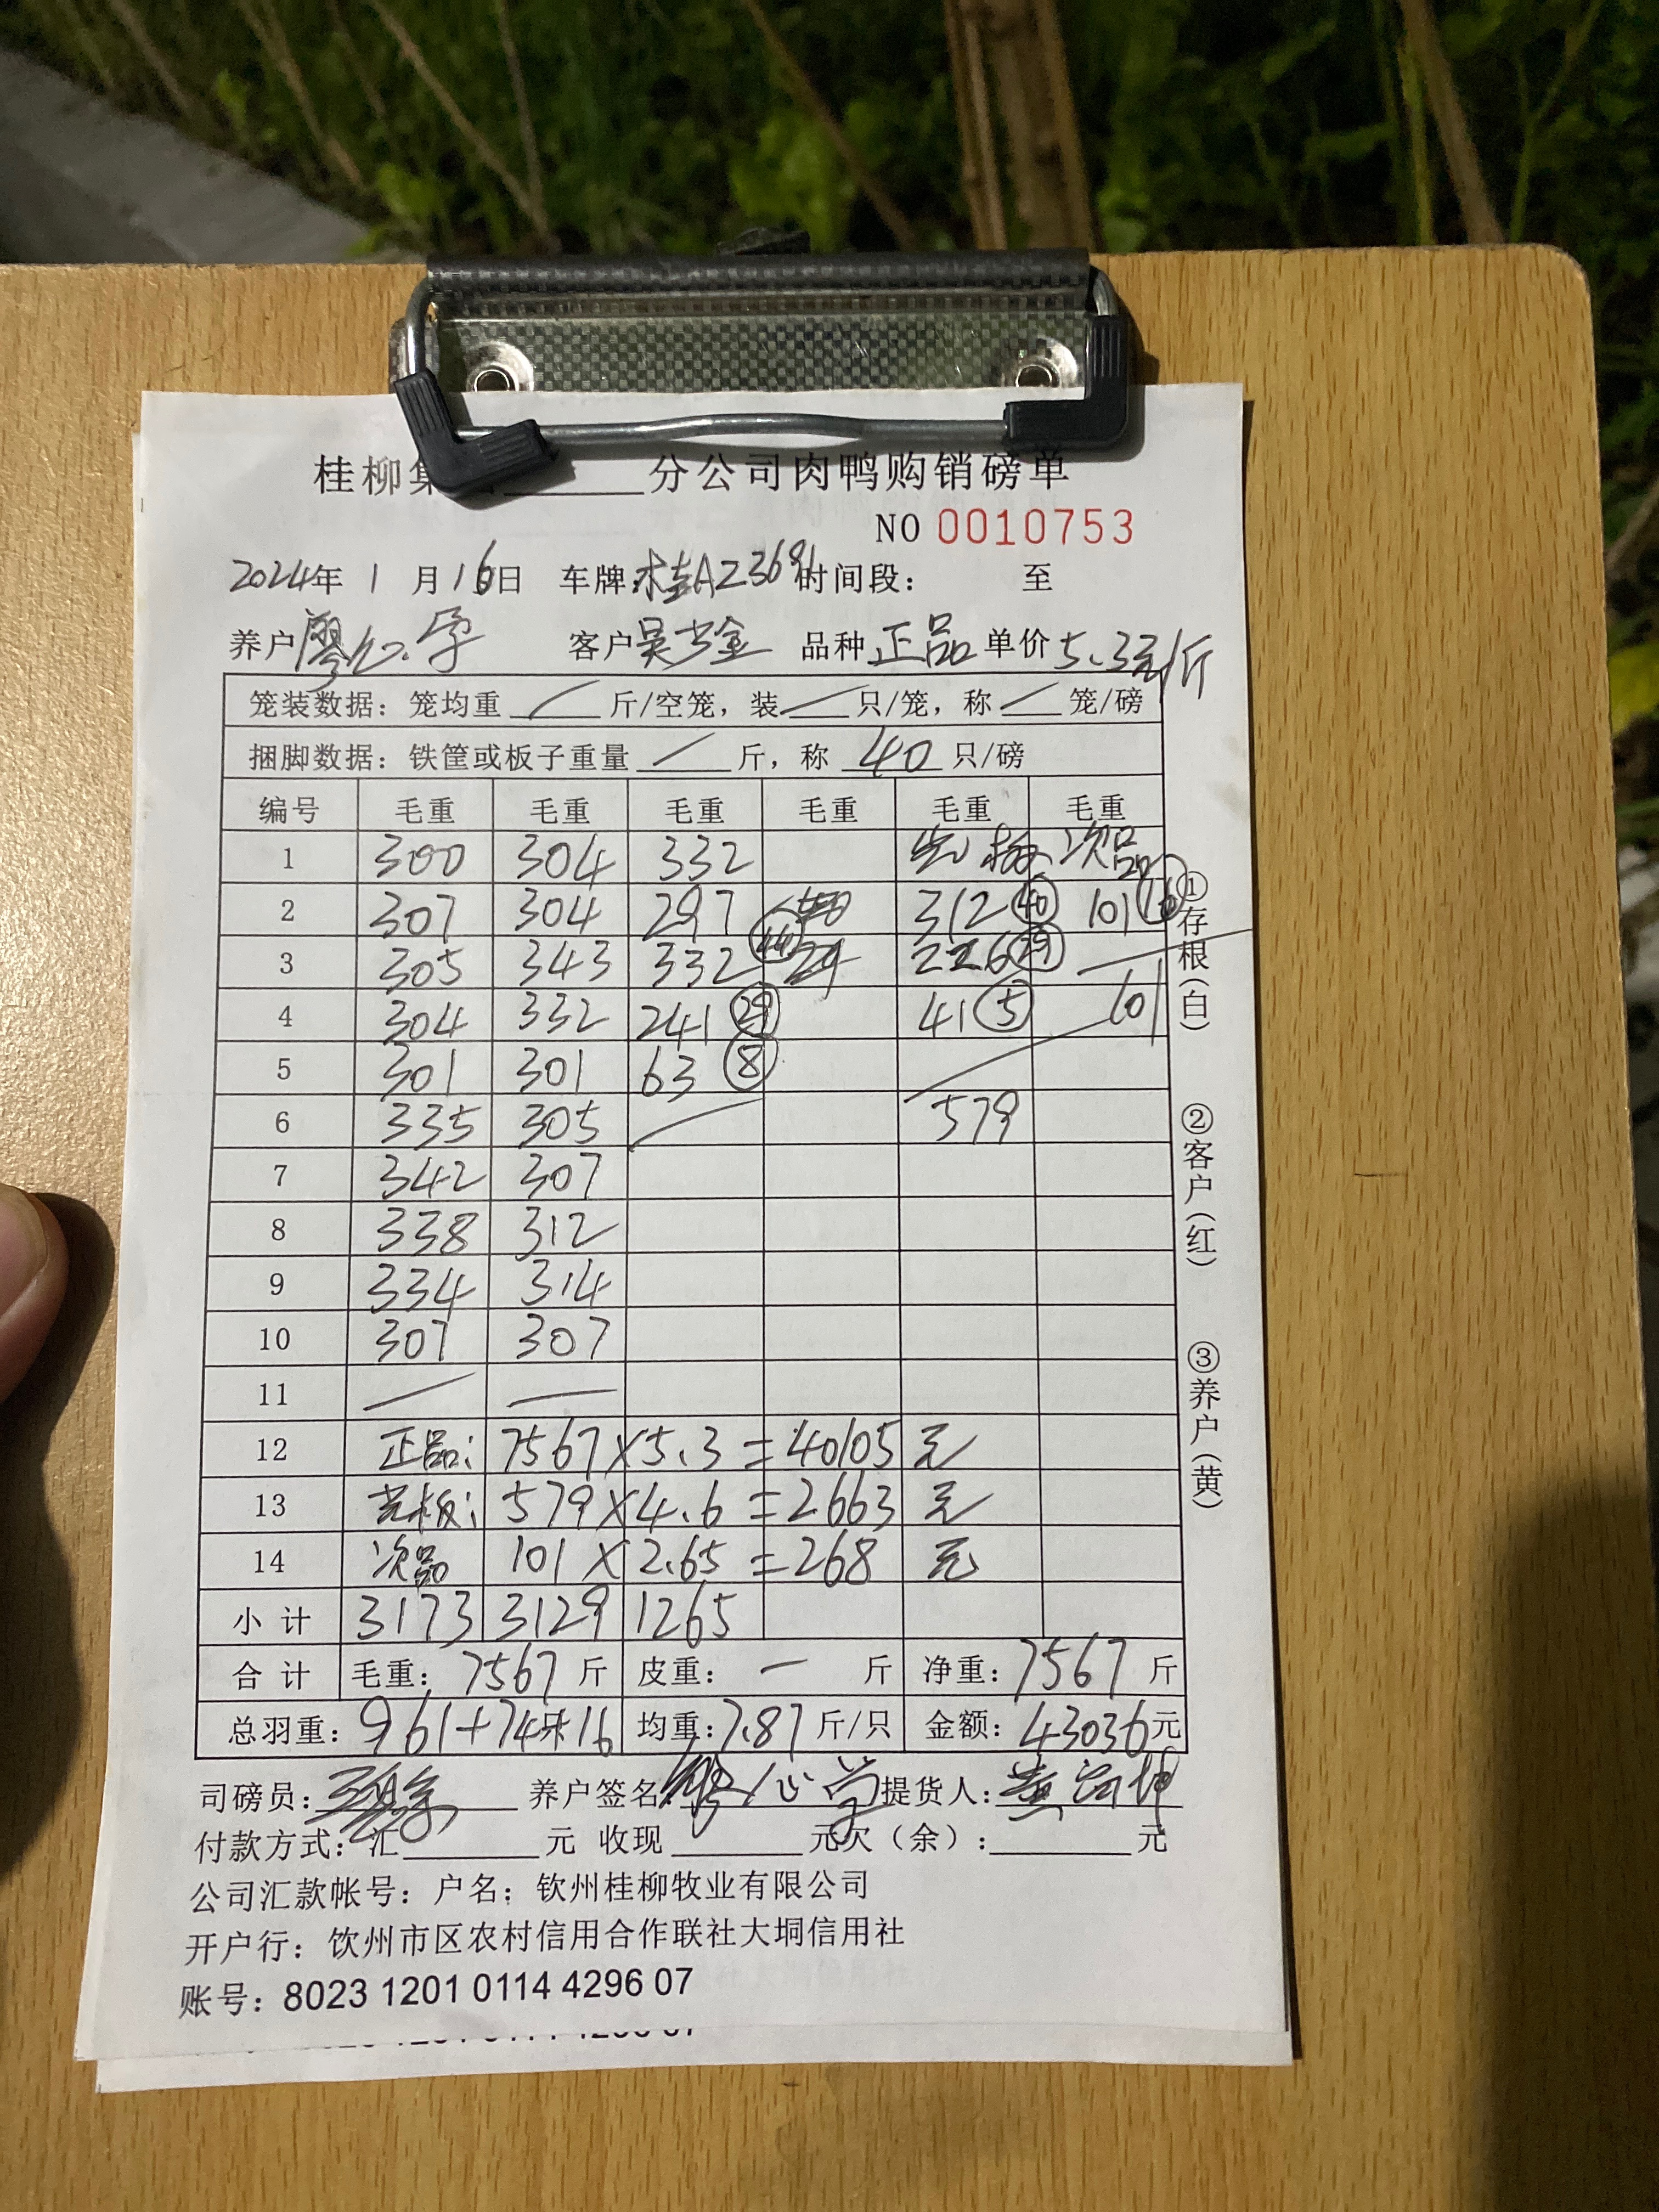 桂柳集 分公司肉鸭购销磅单
NO 0010753
2024年 1 月 16日 车牌:桂AZ369 时间段: 至
养户 廖心学 客户 吴少金 品种 正品 单价 5.3元/斤
笼装数据: 笼均重 / 斤/空笼, 装 / 只/笼, 称 / 笼/磅
捆脚数据: 铁筐或板子重量 / 斤, 称 40 只/磅
编号 毛重 毛重 毛重 毛重 毛重 毛重
1 300 304 332 光板 次品
2 307 304 297 312 40 101 16
3 305 343 332 44 29 226 29
4 304 332 241 29 41 5 101
5 301 301 63 8
6 335 305 579
7 342 307
8 338 312
9 334 314
10 307 307
11
12 正品: 7567×5.3=40105 元
13 光板: 579×4.6=2663 元
14 次品 101×2.65=268 元
小 计 3173 3129 1265
合 计 毛重: 7567 斤 皮重: 一 斤 净重: 7567 斤
总羽重: 961+74+16 均重: 7.87 斤/只 金额: 43036元
司磅员: 养户签名: 廖心学 提货人: 黄
付款方式: 汇 元 收现 元欠(余): 元
公司汇款帐号: 户名: 钦州桂柳牧业有限公司
开户行: 钦州市区农村信用合作联社大垌信用社
账号: 8023 1201 0114 4296 07
①存根(白)
②客户(红)
③养户(黄)